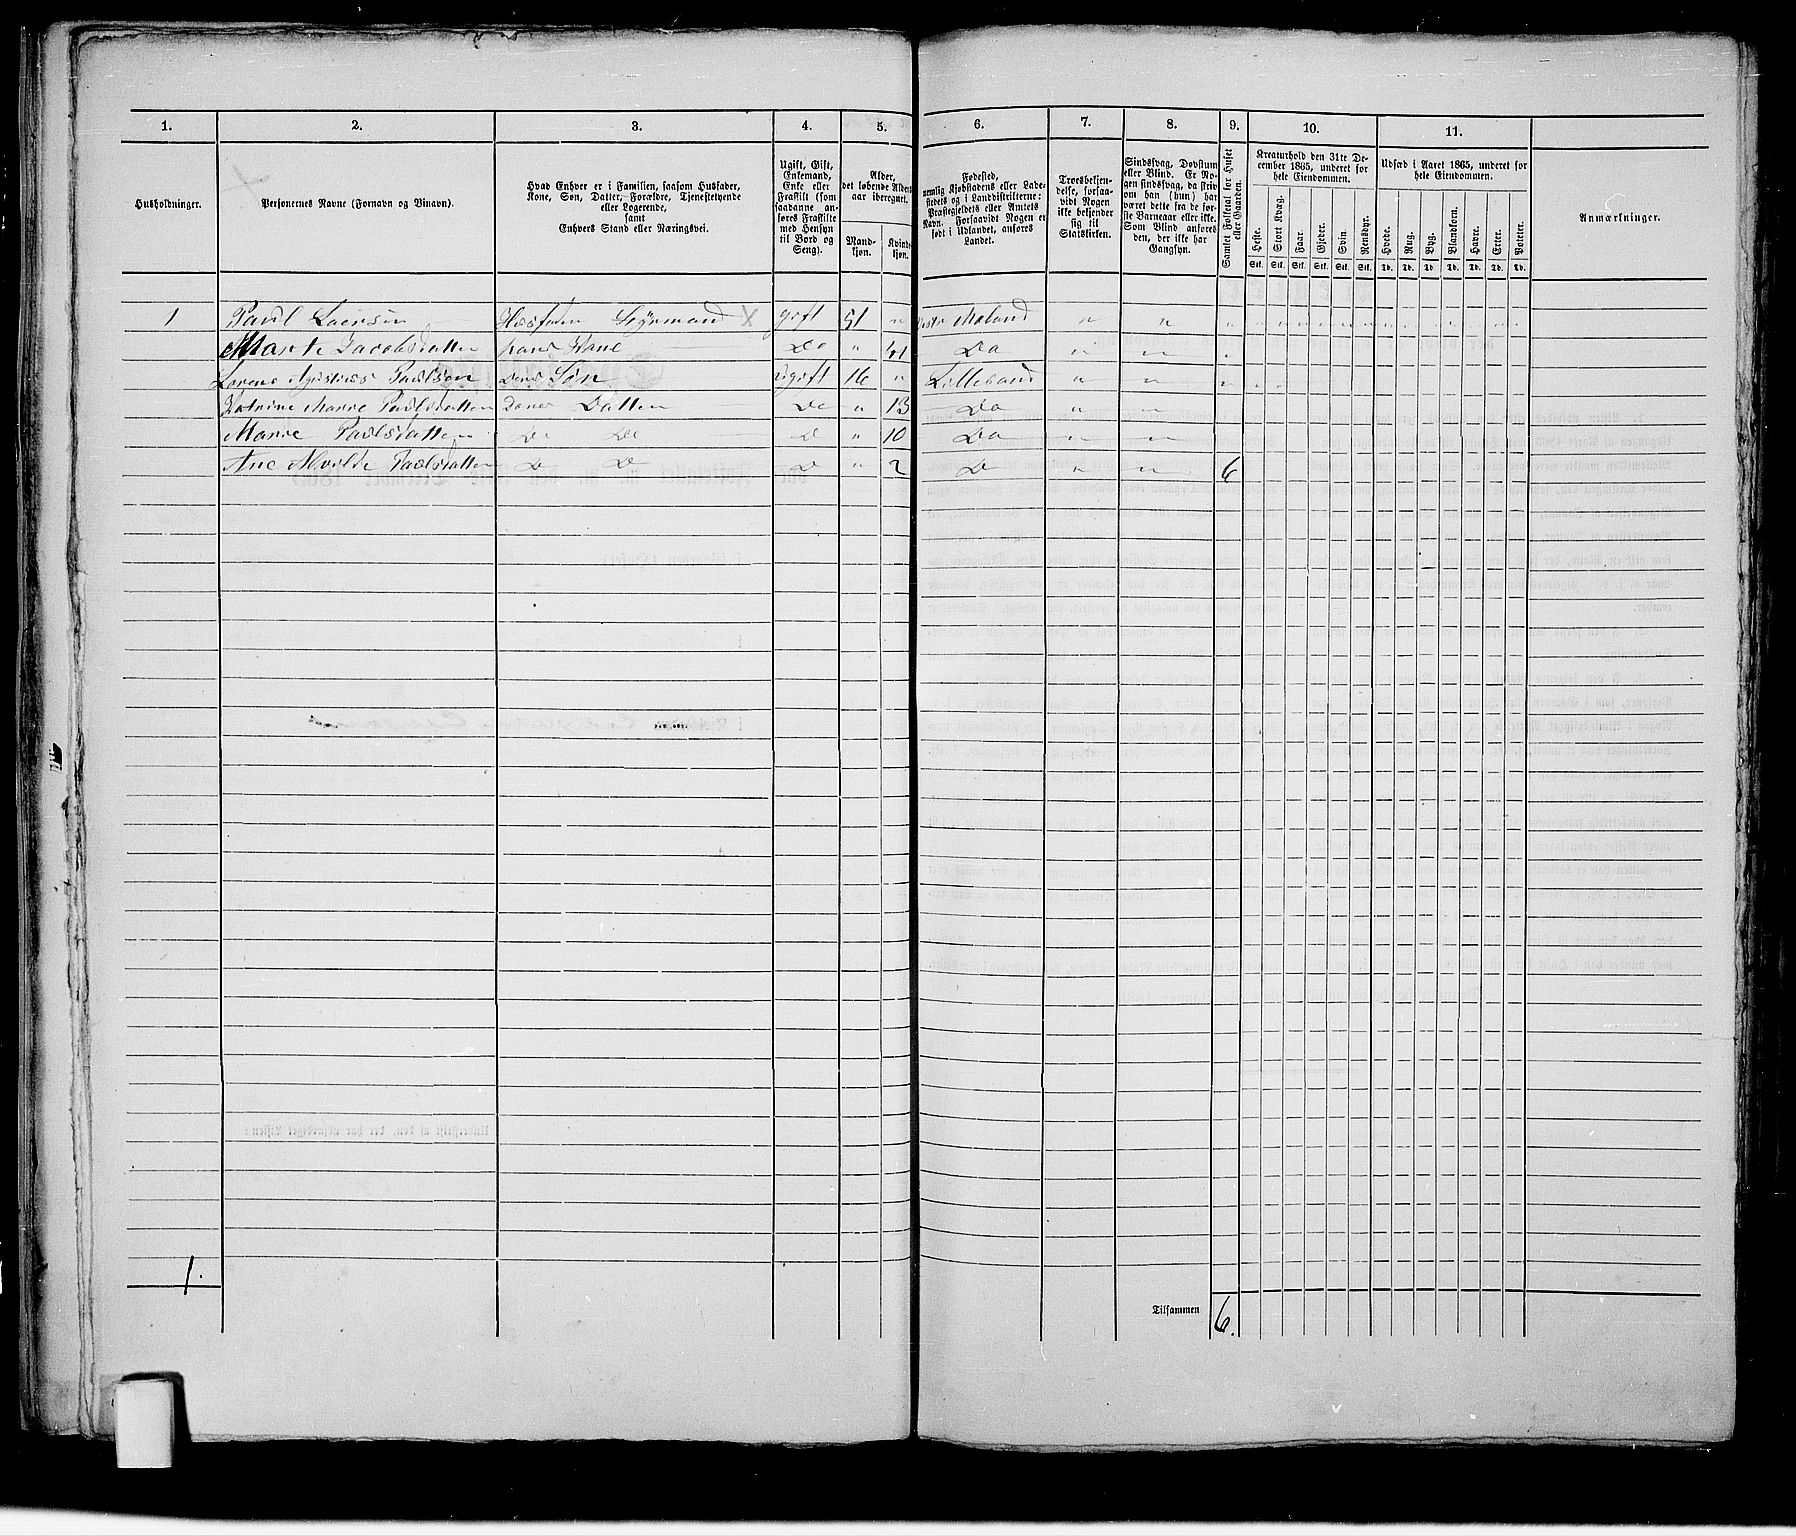 1. 2. 3. 4. 5. 6. 7. 8. 9. 10. 11.
Husholdninger.
Personernes Navne (Fornavn og Binavn).
Hvad Enhver er i Familien, saasom Husfader,
Kone, Søn, Datter, Forældre, Tjenestetyende
eller Logerende,
samt
Enhvers Stand eller Næringsvei.
Ugift, Gift,
Enkemand,
Enke eller
Fraskilt (som
saadanne an-
føres Fraskilte
med Hensyn
til Bord og
Seng).
Alder,
det løbende Alders-
aar iberegnet.
Mand-
kjøn.
Kvinde-
kjøn.
Fødested,
nemlig Kjøbstadens eller Lade-
stedets og i Landdistrikterne:
Præstegjeldets eller Amtets
Navn. Forsaavidt Nogen er
født i Udlandet, anføres
Landet.
Troesbekjen-
delse, forsaa-
vidt Nogen
ikke bekjender
sig til
Statskirken.
Sindssvag, Døvstum
eller Blind. Er No-
gen sindssvag, da skriv
om han (hun) har
været dette fra de før-
ste Barneaar eller ikke.
Som Blind anføres
den, der ikke har
Gangsyn.
Samlet Folketal for Huset
eller Gaarden.
Kreaturhold den 31te De-
cember 1865, underet for
hele Eiendommen.
Heste. Stort Kvæg. Faar. Gjeder. Svin Rensdyr.
Stk. Stk. Stk. Stk. Stk. Stk.
Udsæd i Aaret 1865, underet for
hele Eiendommen.
Hvede. Rug. Byg. Blandkorn. Havre. Erter. Poteter.
Td. Td. Td. Td. Td. Td. Td.
Anmærkninger.
1 Paul Laersen Husfader Styrmand X gift 51 " Østr Moland " " " " " " " " " " " " " " " "
Marte Jacobsdatter hans Kone Do " 41 Do " " "
Agustinus Paulsen Deres Søn Ugift 16 " Lillesand " " "
Katrine Marie Paulsdatter Deres Datter Do " 13 Do " "
Marie Paulsdatter Do Do D " 10 Do " "
Ane Alvilde Paulsdatter D D D " 2 D " " 6
1.
Tilsammen 6.